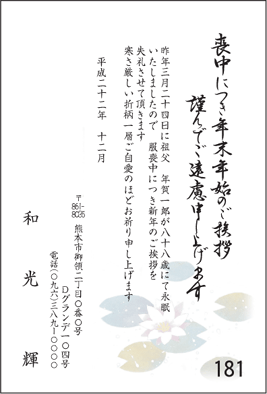 喪中につき年末年始のご挨拶
謹んでご遠慮申し上げます
昨年三月二十四日に祖父 年賀一郎が八十八歳にて永眠
いたしましたので 服喪中につき新年のご挨拶を
失礼させて頂きます
寒さ厳しい折柄一層ご自愛のほどお祈り申し上げます
平成二十二年 十二月
〒861-8035
熊本市御領二丁目〇番〇号
Dグランデ一〇四号
電話(〇九六)三八九-〇〇〇〇
和光 輝
181